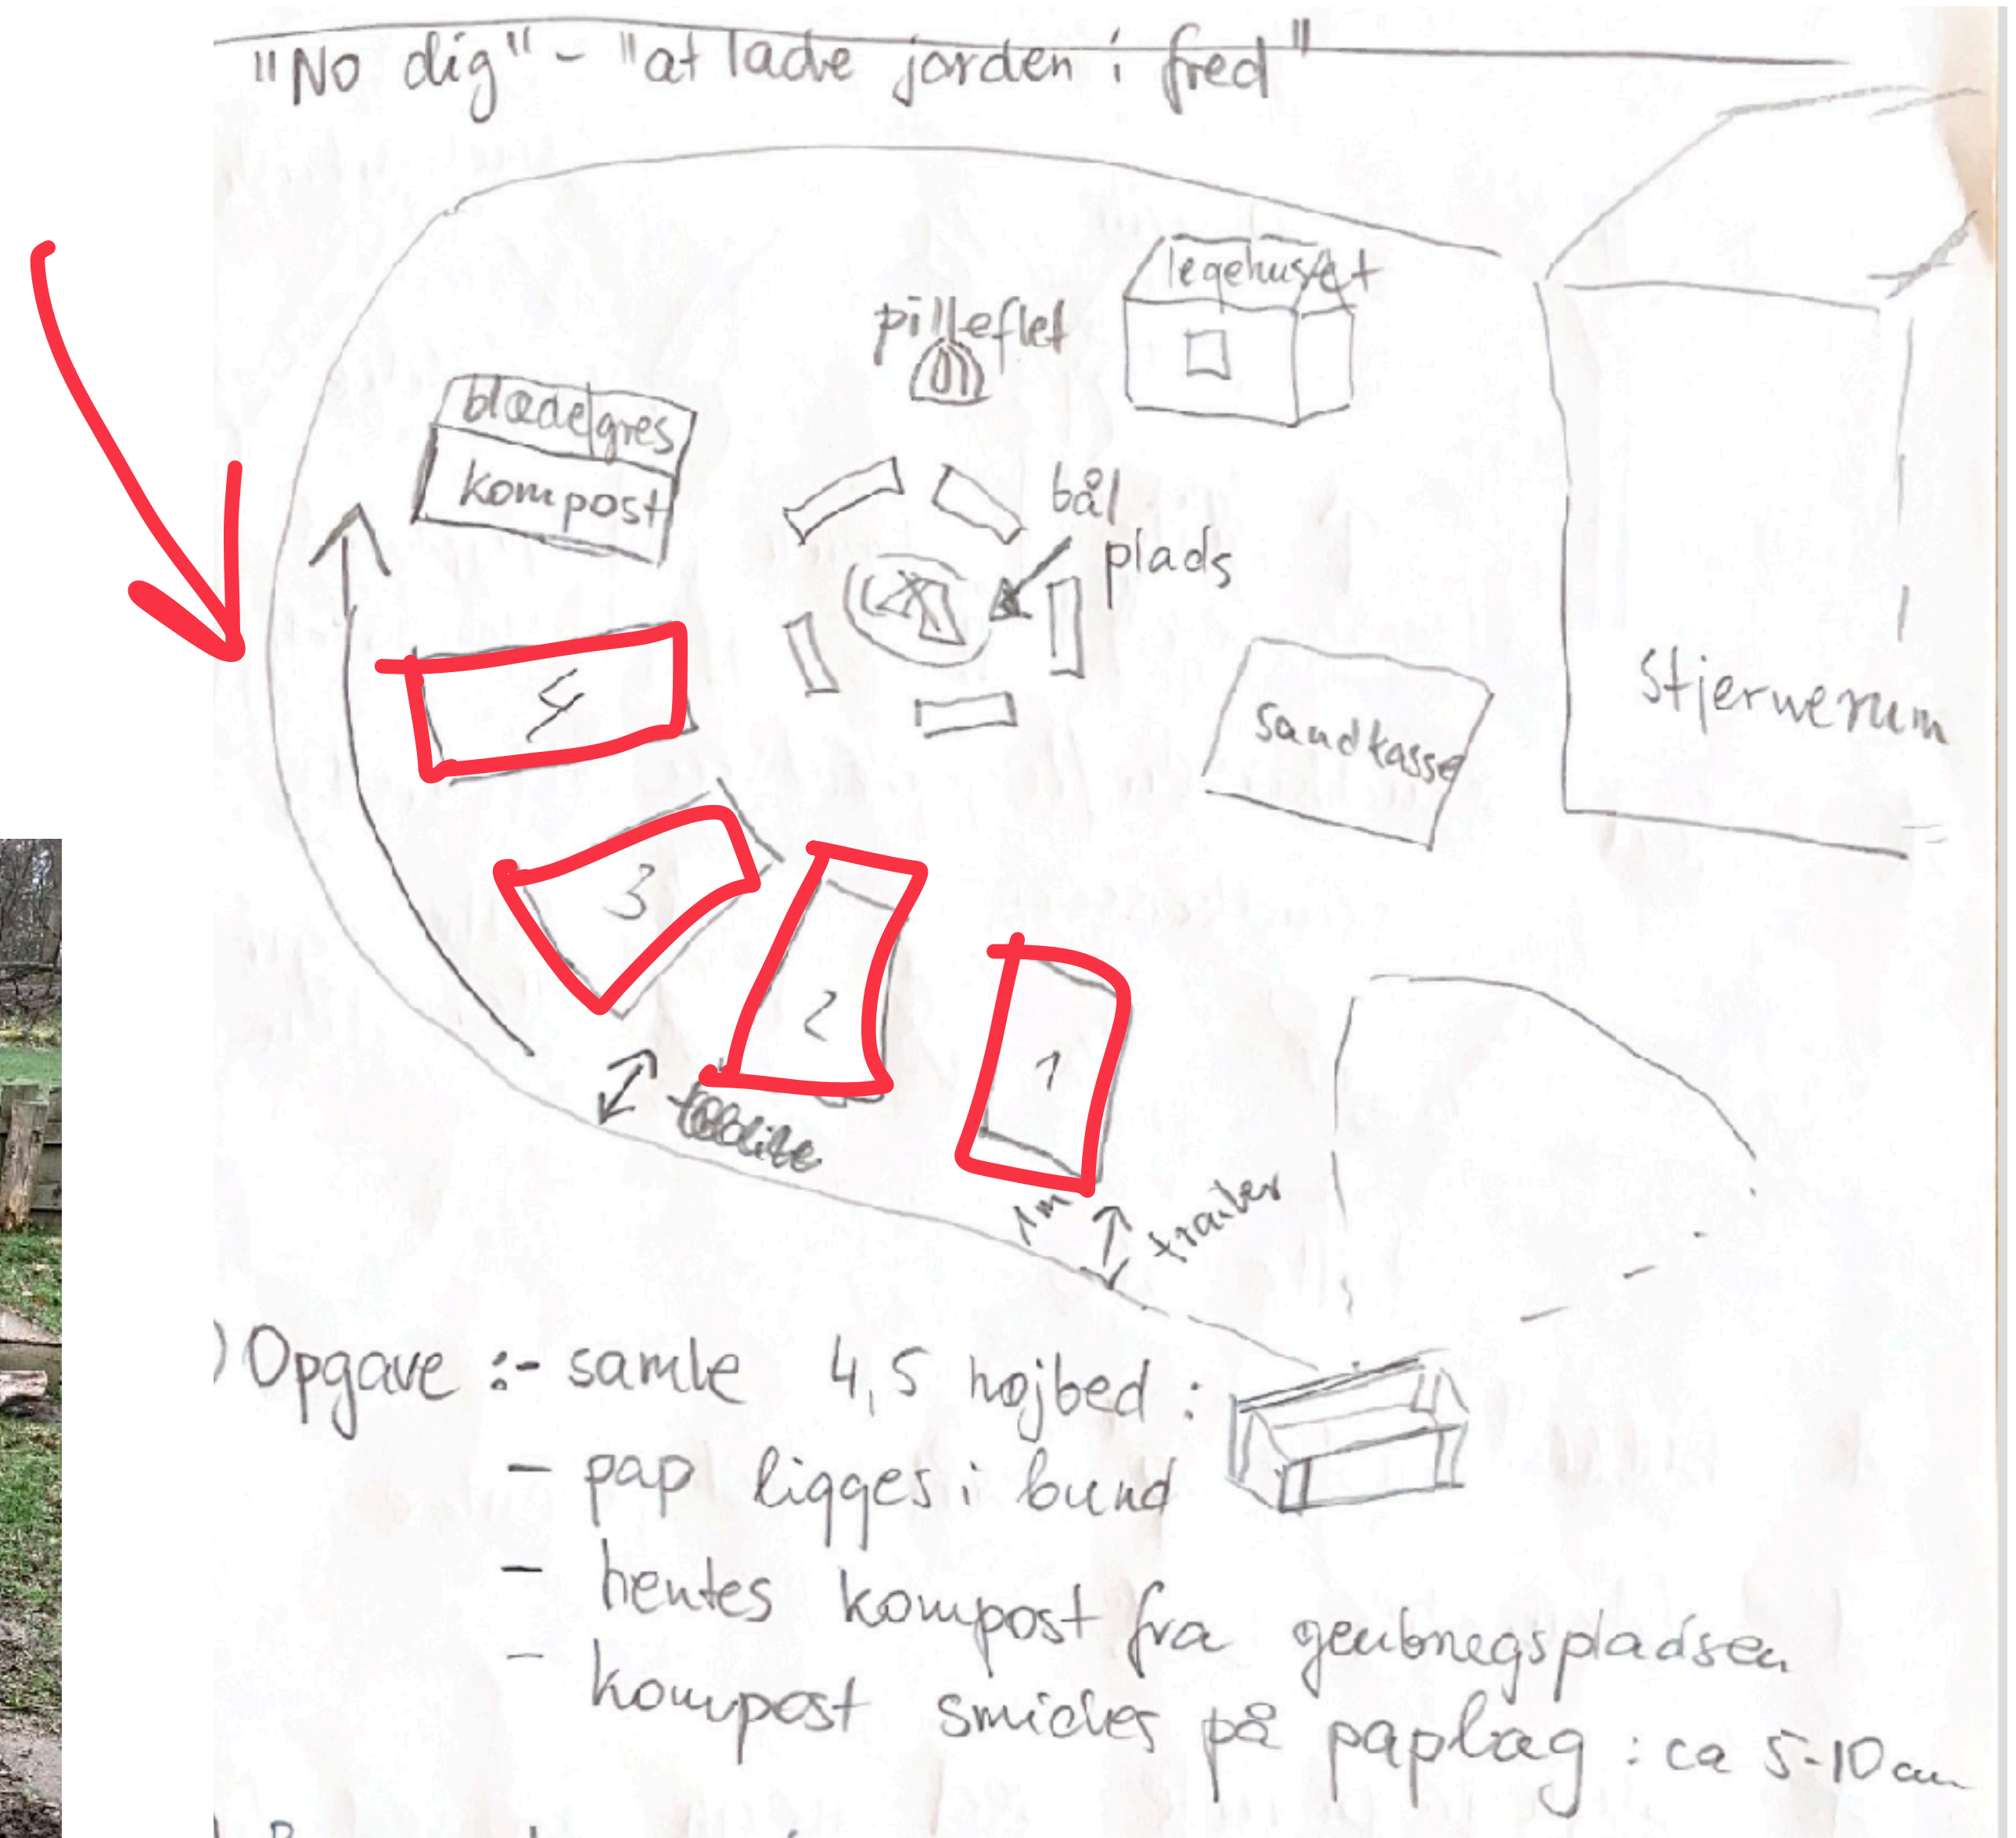 "No dig" - "at lade jorden i fred"
legehuset
pilleflet
blade græs
kompost
bål
plads
Stjernerum
4
sandkasse
3
2
1
1m
trailer
Opgave :- samle 4,5 højbed :
- pap ligges i bund
- hentes kompost fra genbrugspladsen
- kompost smides på paplag : ca 5-10 cm